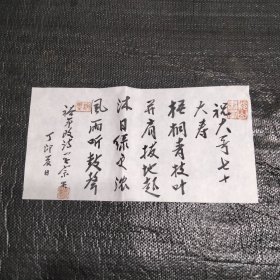 祝大哥七十
大寿
梧桐青枝叶
并肩拔地起
沐日绿更浓
风雨听鼓声
丁卯夏日